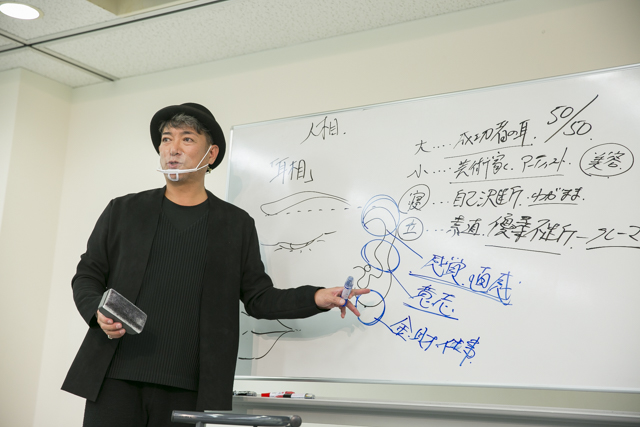 人相.
耳相
50/50
大....成功者の耳.
小....芸術家、アーティスト 美容
寝...自己決断 わがまま.
立...素直 優柔不断
感覚、直感
意志
金、財、仕事